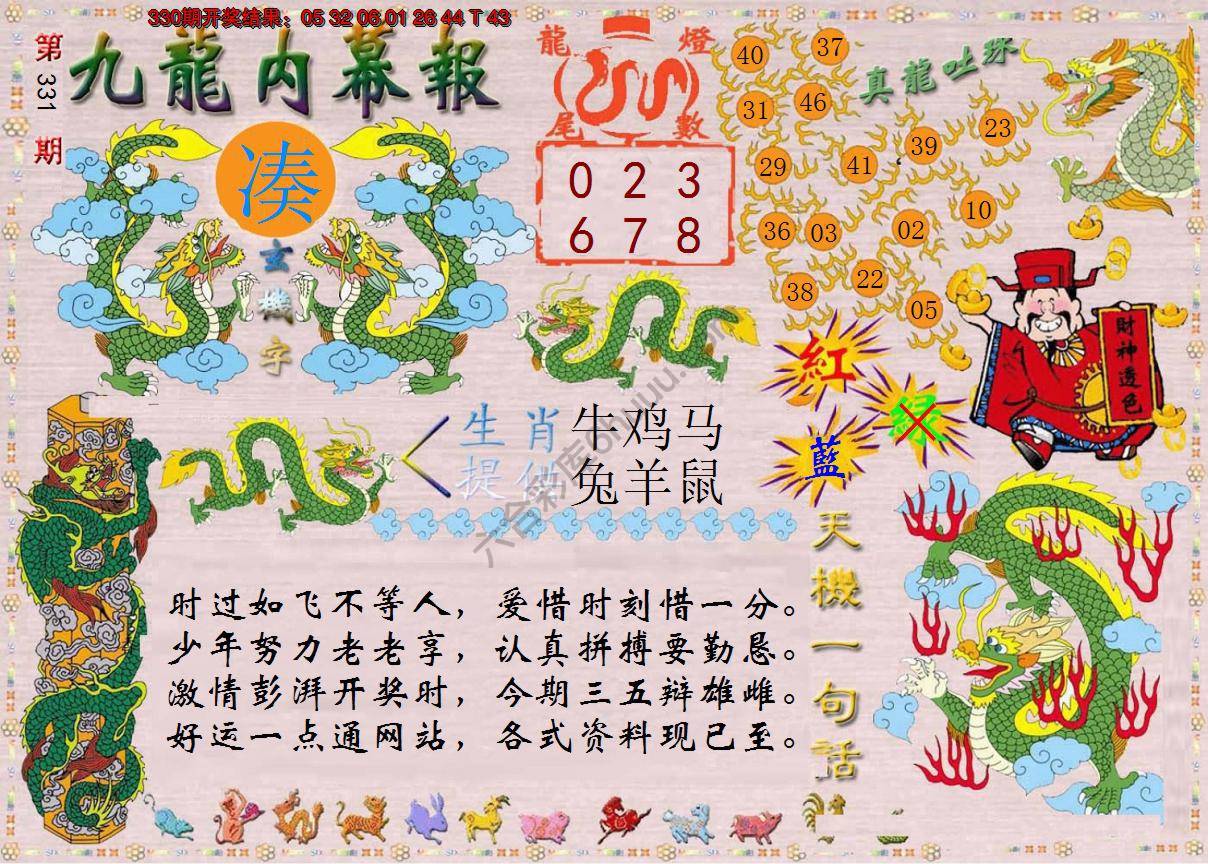 330期开奖结果：05 32 06 01 26 44 T 43
第331期
九龍内幕報
湊
玄機字
龍燈尾數
0 2 3
6 7 8
真龍吐珠
40
37
31
46
29
41
39
23
36
03
02
10
38
22
05
財神透色
紅
绿
藍
生肖 牛鸡马
提供 兔羊鼠
天機一句話
时过如飞不等人，爱惜时刻惜一分。
少年努力老老享，认真拼搏要勤恳。
激情彭湃开奖时，今期三五辩雄雌。
好运一点通网站，各式资料现已至。